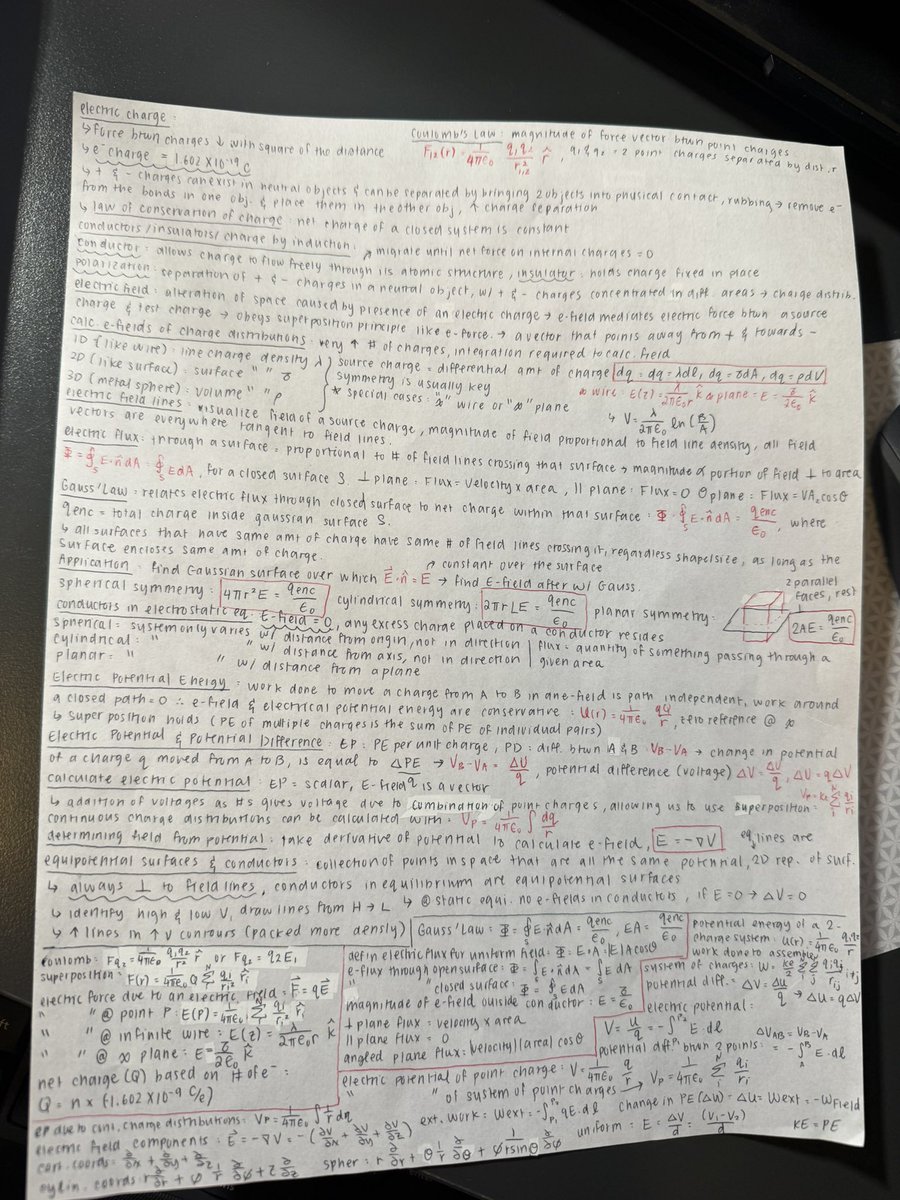 electric charge :
↳ force btwn charges ↓ with square of the distance
Coulomb's Law : magnitude of force vector btwn point charges
F₁₂(r) = 1/4πε₀ q₁q₂/r²₁,₂ r̂ , q₁ & q₂ = 2 point charges separated by dist. r
↳ e⁻ charge = 1.602 X10⁻¹⁹ C
↳ + & - charges can exist in neutral objects & can be separated by bringing 2 objects into physical contact, rubbing → remove e⁻
from the bonds in one obj. & place them in the other obj, ↑ charge separation
↳ law of conservation of charge : net charge of a closed system is constant
conductors/insulators/charge by induction :
↗ migrate until net force on internal charges = 0
conductor : allows charge to flow freely through its atomic structure, insulator : holds charge fixed in place
polarization : separation of + & - charges in a neutral object, w/ + & - charges concentrated in diff. areas → charge distrib.
electric field : alteration of space caused by presence of an electric charge → e-field mediates electric force btwn a source
charge & test charge → obeys superposition principle like e-force. → a vector that points away from + & towards -
calc. e-fields of charge distributions : very ↑ # of charges, integration required to calc. field
1D (like wire) : line charge density λ
2D (like surface) : surface " " σ
3D (metal sphere) : volume " " ρ
source charge = differential amt of charge dq = dq = λdl, dq = σdA, dq = ρdV
symmetry is usually key
* special cases : "∞" wire or "∞" plane
∞ wire : E(z) = λ/2πε₀r k̂ ∞ plane = E = σ/2ε₀ k̂
↳ V = λ/2πε₀ ln (B/A)
electric field lines : visualize field of a source charge, magnitude of field proportional to field line density, all field
vectors are everywhere tangent to field lines.
electric flux : through a surface = proportional to # of field lines crossing that surface → magnitude of portion of field ⊥ to area
Φ = ∮s E·n̂ dA = ∮s E dA, for a closed surface S ⊥ plane : Flux = velocity x area, || plane : Flux = 0 θ plane : Flux = VA,cosθ
Gauss' Law : relates electric flux through closed surface to net charge within that surface : Φ = ∮s E·n̂ dA = qenc/ε₀, where
qenc = total charge inside gaussian surface S.
↳ all surfaces that have same amt of charge have same # of field lines crossing it, regardless shape/size, as long as the
surface encloses same amt of charge.
↗ constant over the surface
Application : find Gaussian surface over which E⃗·n̂ = E → find E-field after w/ Gauss.
spherical symmetry : 4πr²E = qenc/ε₀ cylindrical symmetry : 2πrLE = qenc/ε₀ planar symmetry :
2 parallel
faces, rest
2AE = qenc/ε₀
conductors in electrostatic eq. E-field = 0, any excess charge placed on a conductor resides
spherical = system only varies w/ distance from origin, not in direction
cylindrical : " " w/ distance from axis, not in direction
planar = " " w/ distance from a plane
flux = quantity of something passing through a
given area
Electric Potential Energy : work done to move a charge from A to B in an e-field is path independent, work around
a closed path = 0 ∴ e-field & electrical potential energy are conservative : U(r) = 1/4πε₀ qQ/r, zero reference @ ∞
↳ super position holds (PE of multiple charges is the sum of PE of individual pairs)
Electric Potential & Potential Difference : EP : PE per unit charge, PD : diff. btwn A & B VB-VA → change in potential
of a charge q moved from A to B, is equal to ΔPE → VB-VA = ΔU/q, potential difference (voltage) ΔV = ΔU/q, ΔU = qΔV
calculate electric potential : EP = scalar, E-field is a vector
↳ addition of voltages as #s gives voltage due to combination of point charges, allowing us to use superposition : Vp = ke Σ qi/ri
continuous charge distributions can be calculated with : Vp = 1/4πε₀ ∫ dq/r
determining field from potential : take derivative of potential to calculate e-field, E = -∇V
eq. lines are
equipotential surfaces & conductors : collection of points in space that are all the same potential, 2D rep. of surf.
↳ always ⊥ to field lines, conductors in equilibrium are equipotential surfaces
↳ @ static equi. no e-fields in conductors, if E=0 → ΔV=0
↳ identify high & low V, draw lines from H → L
↳ ↑ lines in ↑ V contours (packed more densly)
Gauss' Law : Φ = ∮s E·n̂ dA = qenc/ε₀, EA = qenc/ε₀
coulomb : Fq₂ = 1/4πε₀ q₁q₂/r² r̂ or Fq₂ = q2E₁
superposition : F(r) = 1/4πε₀ Q Σ qi/ri² r̂i
electric force due to an electric field : F⃗ = qE⃗
" " @ point P : E(P) = 1/4πε₀ Σ qi/ri² r̂i
" " @ infinite wire : E(z) = λ/2πε₀r k̂
" " @ ∞ plane : E = σ/2ε₀ k̂
net charge (Q) based on # of e⁻ :
Q = n x (-1.602 X10⁻¹⁹ C/e)
defin electric flux for uniform field : Φ = E·A = |E|A cosθ
e-flux through open surface : Φ = ∫s E·n̂ dA = ∫s E dA
" " closed surface : Φ = ∮s E dA
magnitude of e-field outside conductor : E = σ/ε₀
⊥ plane flux = velocity x area
|| plane flux = 0
angled plane flux : |velocity||area| cosθ
potential energy of a 2-
charge system : U(r) = 1/4πε₀ q₁q₂/r
work done to assemble
system of charges : W = ke/2 Σ Σ qiqj/rij i≠j
potential diff. = ΔV = ΔU/q → ΔU = qΔV
electric potential :
V = U/q = -∫ E·dl
ΔVAB = VB-VA
potential diff. btwn 2 points : = -∫ᴬᴮ E·dl
electric potential of point charge : V = 1/4πε₀ q/r
" " of system of point charges → Vp = 1/4πε₀ Σ qi/ri
EP due to cont. charge distributions : Vp = 1/4πε₀ ∫ 1/r dq
ext. work : Wext = -∫ qE·dl change in PE (ΔU) : ΔU = Wext = -Wfield
electric field components : E⃗ = -∇V = -(∂V/∂x + ∂V/∂y + ∂V/∂z)
uniform : E = ΔV/d = (V₁-V₂)/d KE = PE
cart. coords : ∂/∂x + ∂/∂y + ∂/∂z
spher : r ∂/∂r + θ 1/r ∂/∂θ + φ 1/rsinθ ∂/∂φ
cylin. coords : r ∂/∂r + φ 1/r ∂/∂φ + z ∂/∂z